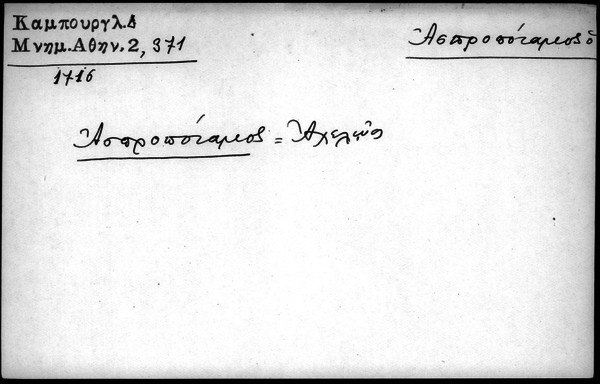 Καμπουργλ.Δ
Μνημ.Αθην.2, 371
1716
Ἀσπροπόταμος ὁ
Ἀσπροπόταμος = Ἀχελῷος